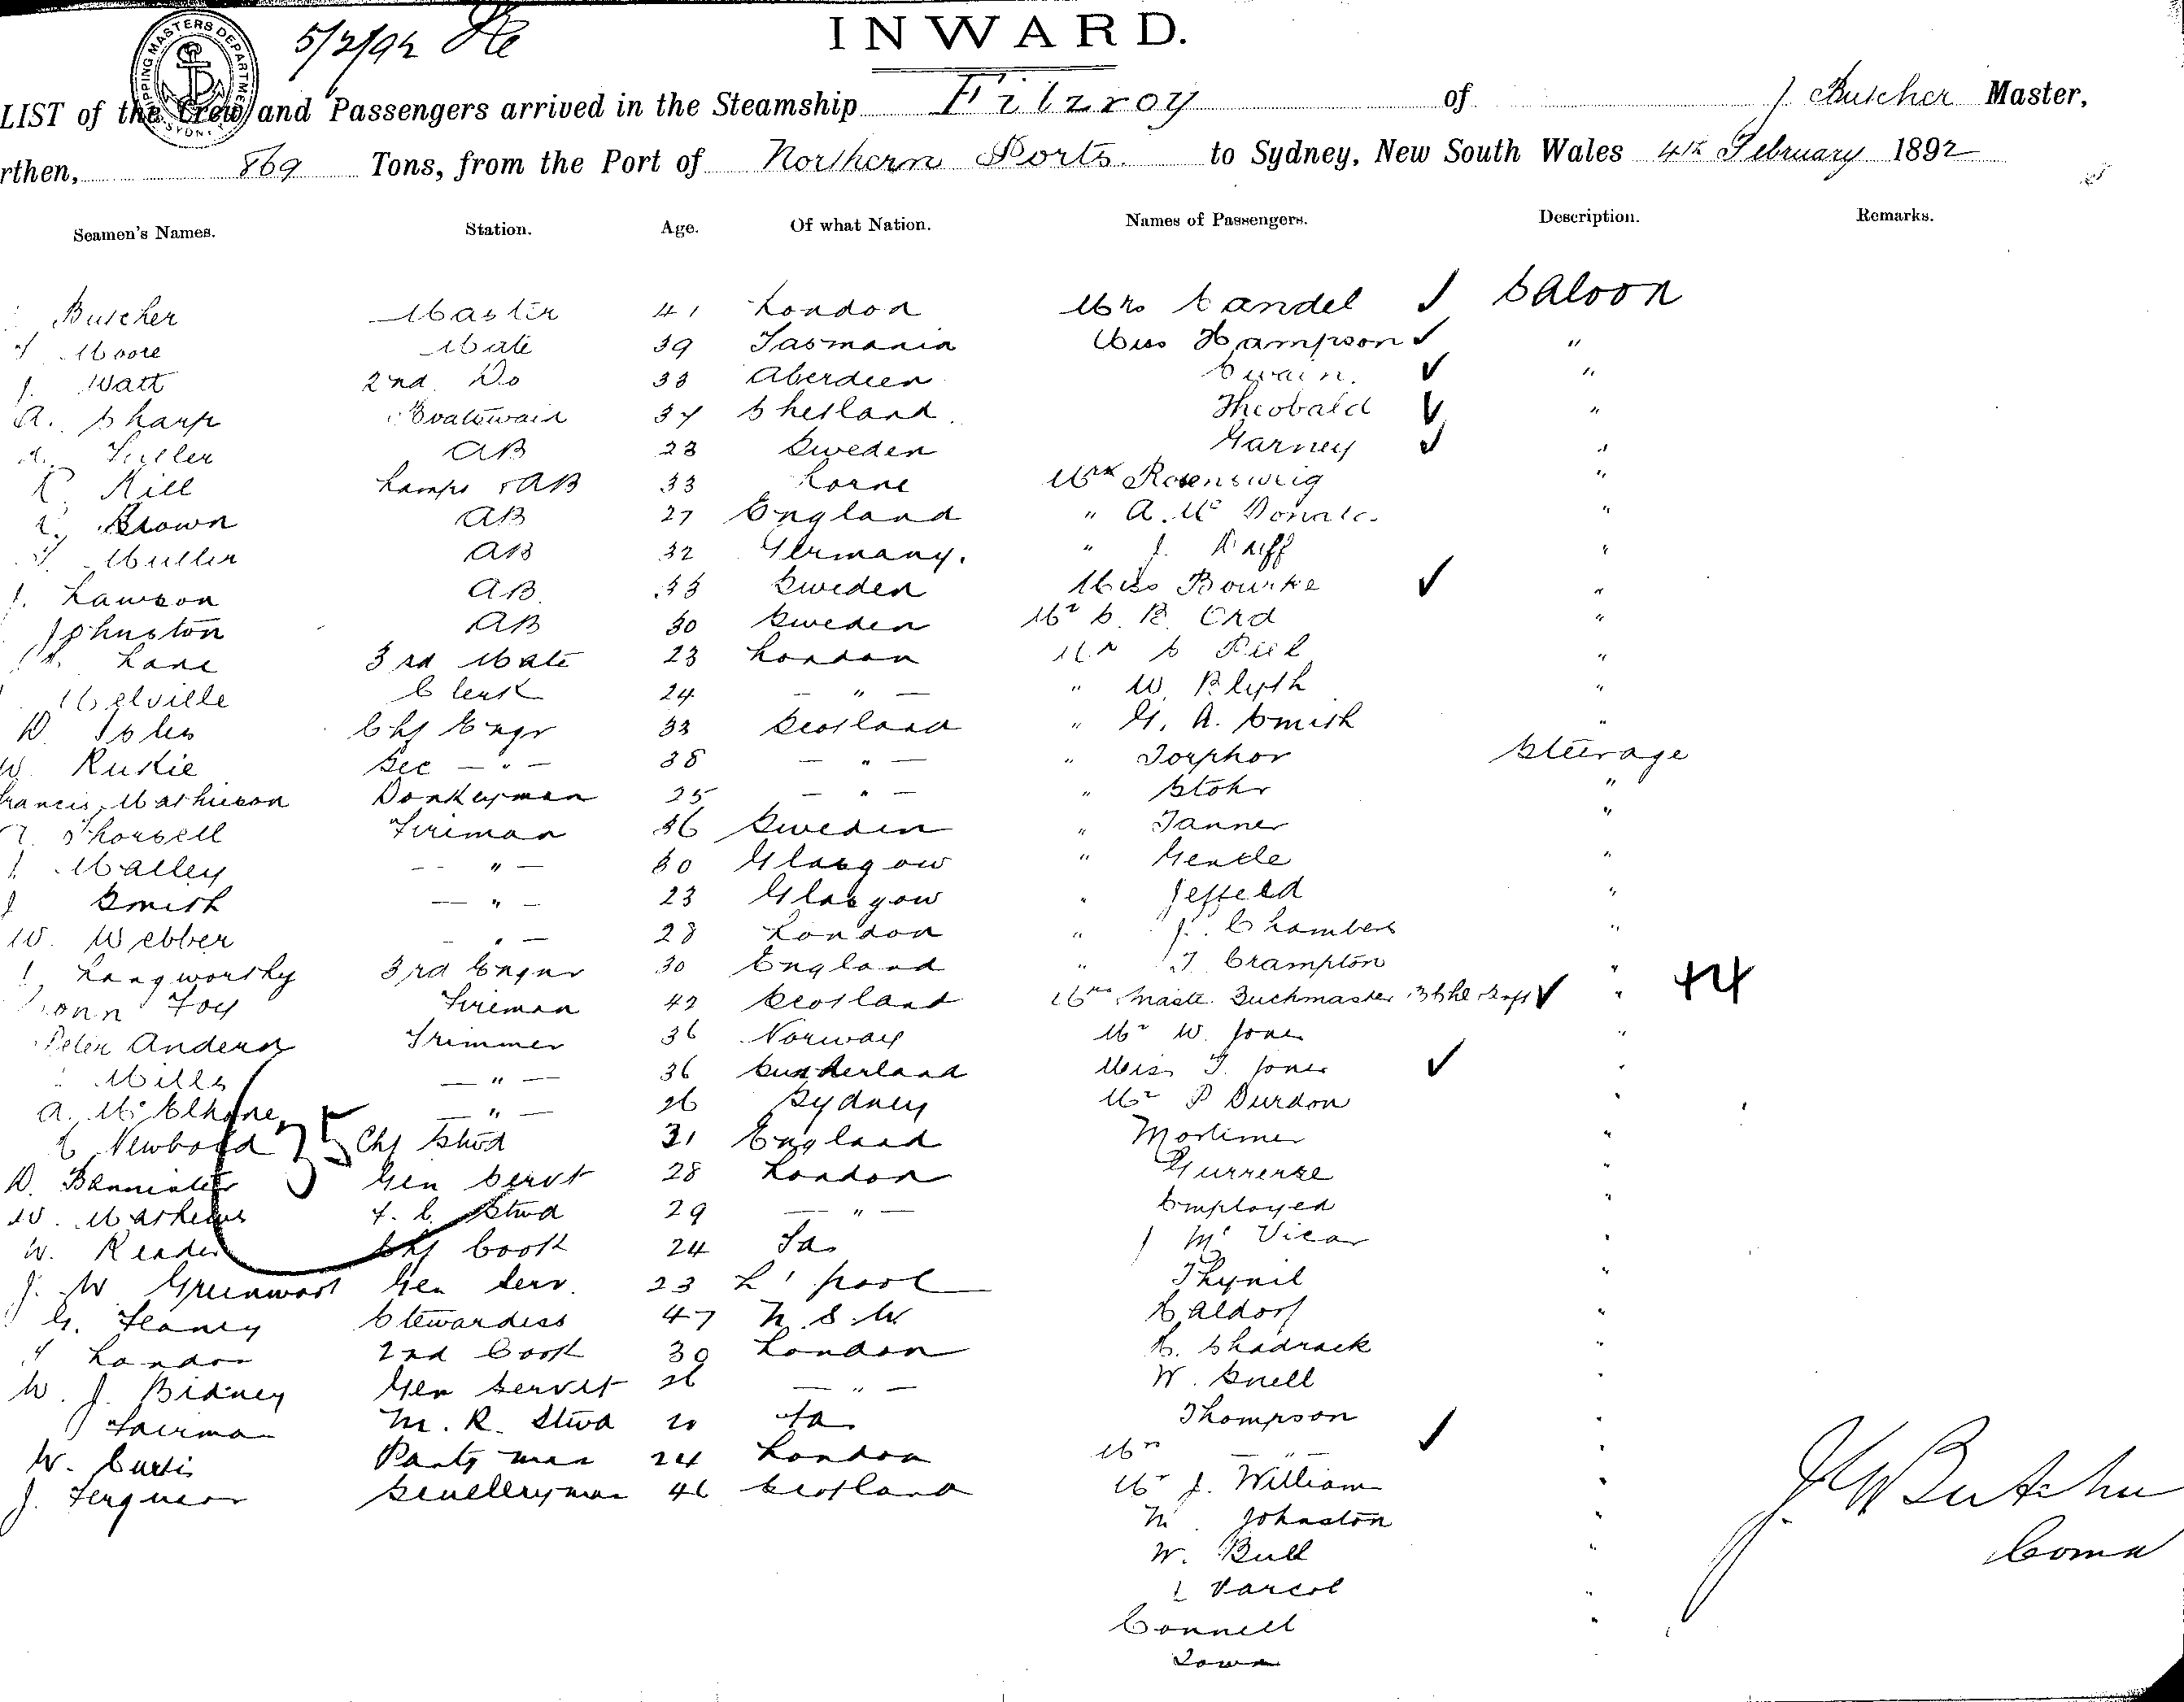 5/2/92
INWARD.
SHIPPING MASTERS DEPARTMENT SYDNEY
LIST of the Crew and Passengers arrived in the Steamship Fitzroy of J Butcher Master,
rthen, 869 Tons, from the Port of Northern Ports. to Sydney, New South Wales 4th February 1892
Seamen's Names. Station. Age. Of what Nation. Names of Passengers. Description. Remarks.
Butcher Master 41 London Mrs Candel Saloon
Moore Mate 39 Tasmania Miss Hampson "
J. Watt 2nd Do 33 Aberdeen Swain. "
A. Sharp Boatswain 34 Shetland Theobald "
AB 23 Sweden Garney "
Kill Lamps & AB 33 Lorne Mrs Rosensweig "
Brown AB 27 England " A. Mc Donald "
Muller AB 32 Germany. " J. "
J. Lawson AB. 33 Sweden Miss Bourke "
Johnston AB 30 Sweden Mr C. B. Ord "
Lane 3rd Mate 23 London Mr "
Melville Clerk 24 — " — " W. Blyth "
D. Chf Engr 33 Scotland " G. A. Smith "
W. Sec — " — 38 — " — " Torphor Steerage
Francis Mathieson Donkeyman 25 — " — " Stohr "
Thorsell Fireman 36 Sweden " Tanner "
Malley — " — 30 Glasgow " Gentle "
J Smith — " — 23 Glasgow " "
W. Webber — " — 28 London " J. Chambers "
Langworthy 3rd Engnr 30 England " T Crampton "
John Foy Fireman 42 Scotland Mrs Maste. Buckmaster " 44
Peter Anders Trimmer 36 Norway Mr W. Jones "
Mills — " — 36 Sunderland Miss T. Jones "
A. McElhone — " — 26 Sydney Mr P Durdon "
Newbold 35 Chf Stwd 31 England Mortimer "
D. Bannister Gen Servt 28 London "
W. Mathews F. C. Stwd 29 — " — Employed "
W. Reader Chf Cook 24 Do J Mc Vicar "
J. W Greenwood Gen Serv. 23 L'pool "
G. Stewardess 47 N.S.W Caldorf "
London 2nd Cook 30 London Shadrack "
W. J. Bidney Gen Servnt 26 — " — W. Snell "
Fairman M. R. Stwd 20 Do Thompson "
W. Curtis Pantry man 24 London Mrs — " — "
J. Ferguson Sculleryman 46 Scotland Mr J. William "
M. Johnston "
W. Bull "
Varcol "
Connell "
J W Butcher
Comd